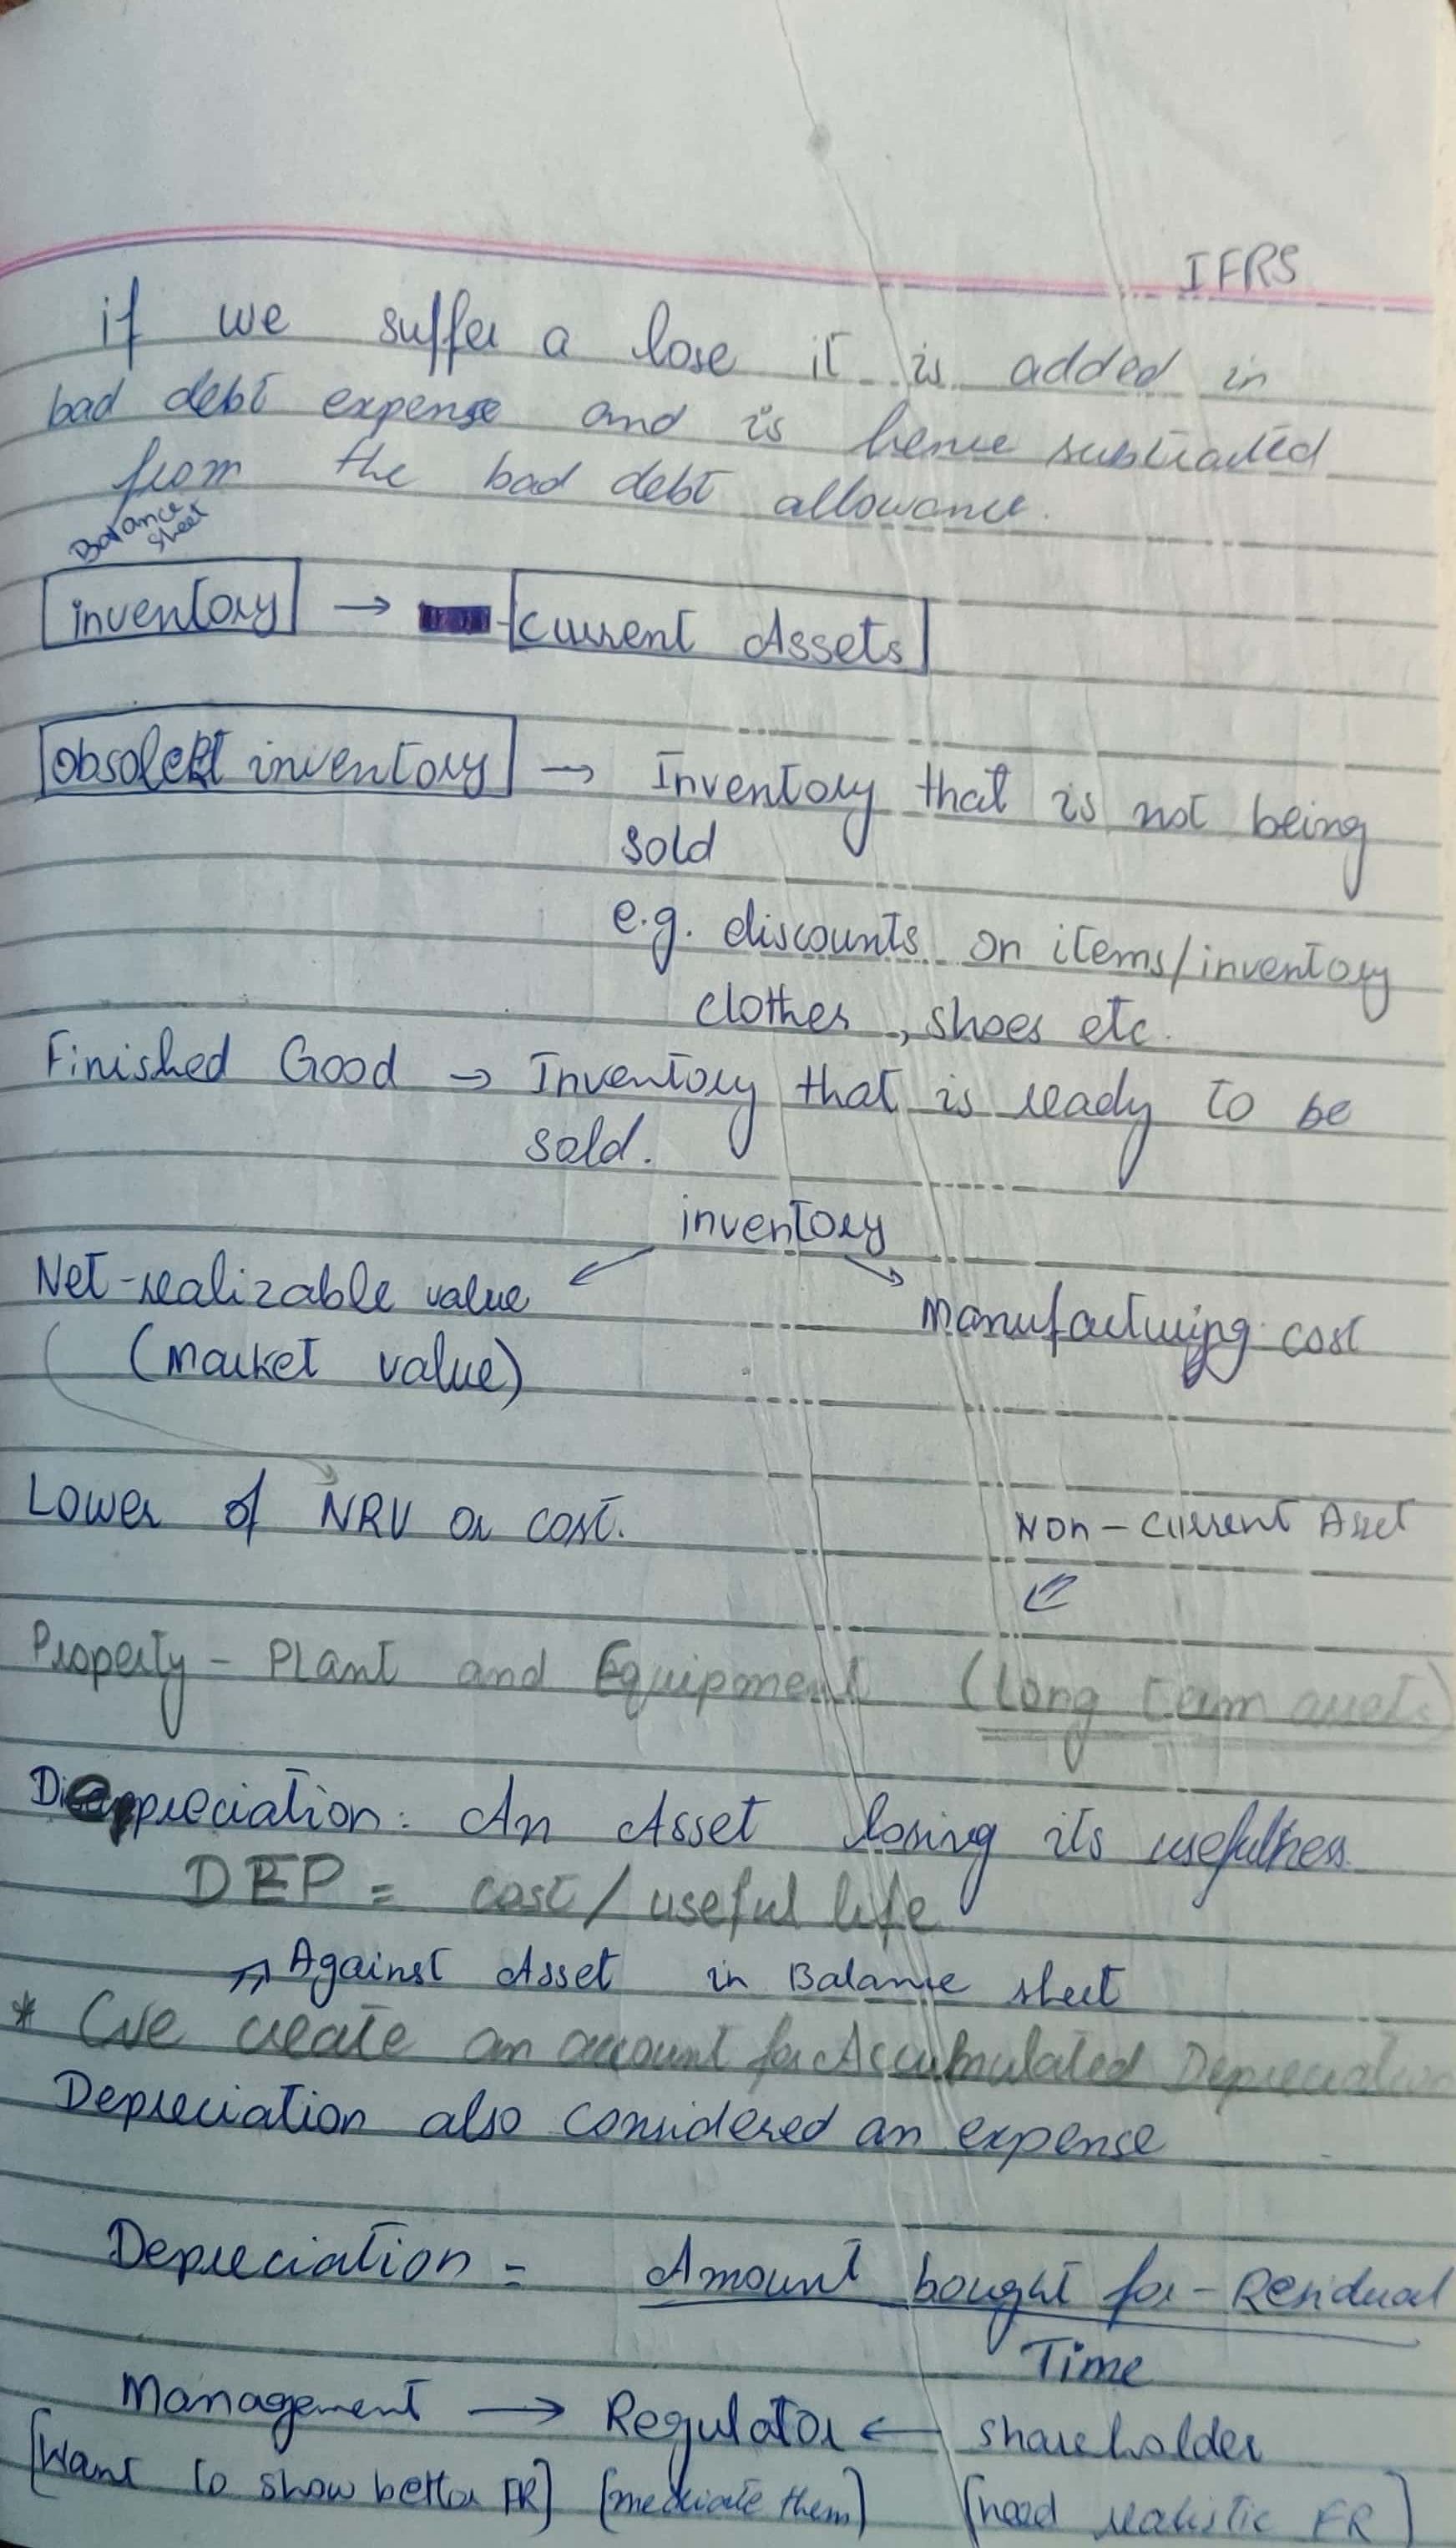 IFRS
if we suffer a lose it is added in
bad debt expense and is hence subtracted
from the bad debt allowance.
Balance
sheet
inventory → current Assets
obsolett inventory → Inventory that is not being
sold
e.g. discounts on items/inventory
clothes, shoes etc.
Finished Good → Inventory that is ready to be
sold.
inventory
Net-realizable value
manufacturing cost
(market value)
Lower of NRV or cost.
Non-current Asset
Property - Plant and Equipment (long term assets)
Depreciation: An Asset losing its usefulness
DEP = cost/useful life
Against Asset in Balance sheet
* We create an account for Accumulated Depreciation
Depreciation also considered an expense
Depreciation = Amount bought for - Residual
Time
Management → Regulator ← shareholder
[Want to show better FR] [mediate them] [need realistic FR]